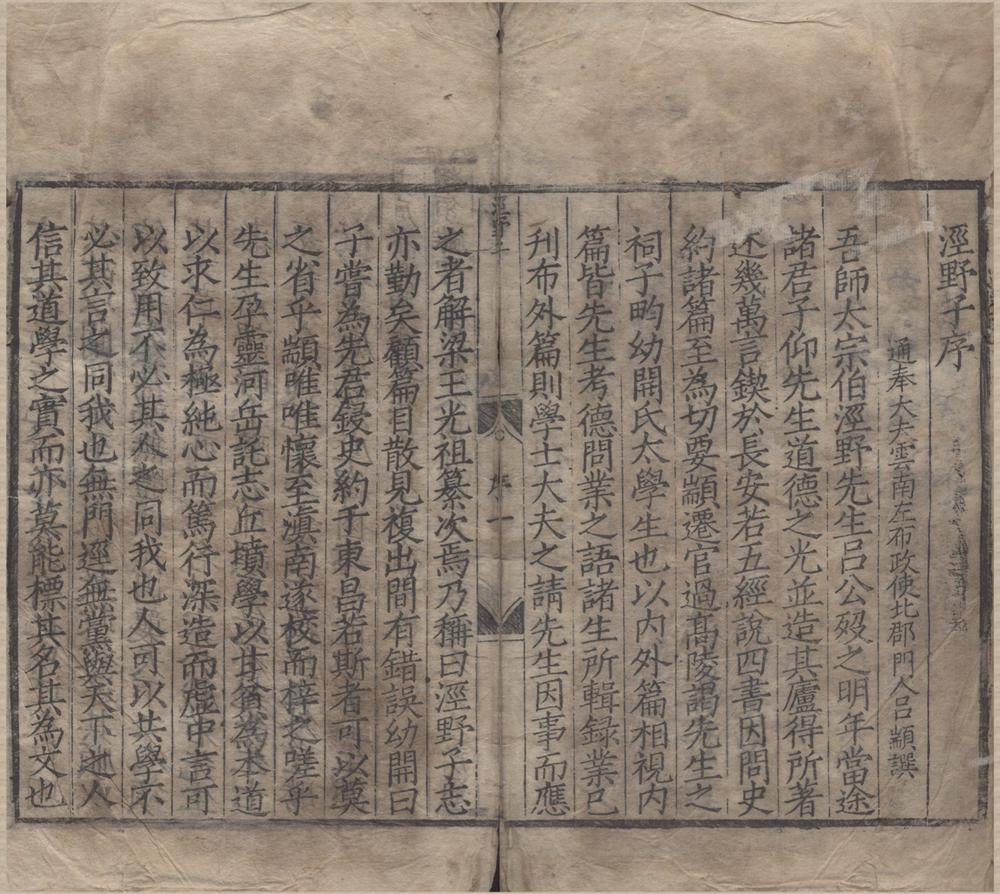 涇野子序
通奉大夫雲南左布政使北郡門人呂顓譔
吾師太宗伯涇野先生呂公歿之明年當途
諸君子仰先生道德之光並造其廬得所著
述幾萬言鍥於長安若五經說四書因問史
約諸篇至為切要顓遷官過高陵謁先生之
祠子畇幼開氏太學生也以内外篇相視内
篇皆先生考德問業之語諸生所輯録業已
刋布外篇則學士大夫之請先生因事而應
涇野子
序
一
之者解梁王光祖纂次焉乃稱曰涇野子志
亦勤矣顧篇目散見複出間有錯誤幼開曰
子嘗為先君鋟史約于東昌若斯者可以莫
之省乎顓唯唯懷至滇南遂校而梓之嗟乎
先生孕靈河岳託志丘墳學以甘貧為本道
以求仁為極純心而篤行深造而虛中言可
以致用不必其人之同我也人可以共學不
必其言之同我也無門逕無黨與天下之人
信其道學之實而亦莫能標其名其為文也